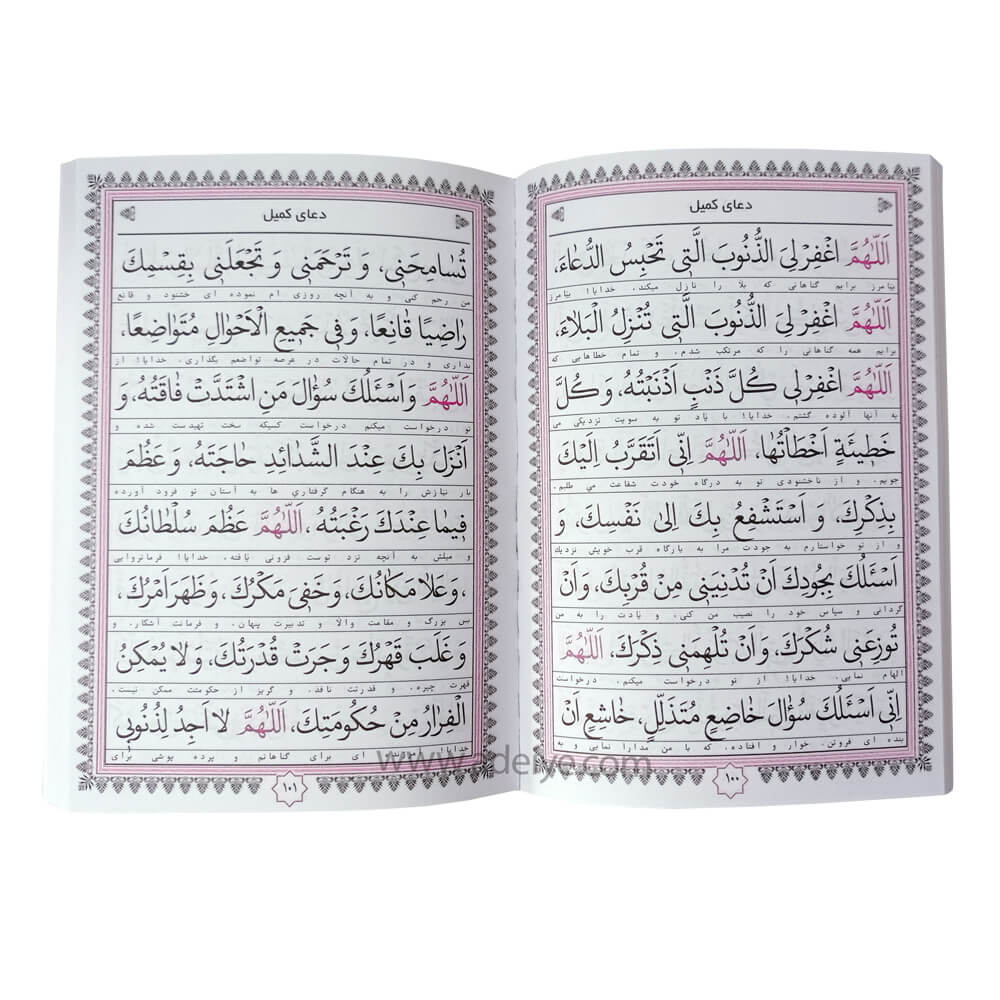 دعای کمیل
اَللّٰهُمَّ اغْفِرْ لِیَ الذُّنُوبَ الَّتی تَحْبِسُ الدُّعاءَ،
بیامرز برایم گناهانی که بلا را نازل میکند، خدایا! بیامرز
اَللّٰهُمَّ اغْفِرْ لِیَ الذُّنُوبَ الَّتی تُنْزِلُ الْبَلاءَ،
برایم همه گناهانی را که مرتکب شدم، و تمام خطاهایی که
اَللّٰهُمَّ اغْفِرْ لی کُلَّ ذَنْبٍ اَذْنَبْتُهُ، وَ کُلَّ
به آنها آلوده گشتم. خدایا! با یاد تو به سویت نزدیکی می
خَطیئَةٍ اَخْطَاْتُها، اَللّٰهُمَّ اِنّی اَتَقَرَّبُ اِلَیْكَ
جویم، و از ناخشنودی تو به درگاه خودت شفاعت می طلبم،
بِذِکْرِكَ، وَ اَسْتَشْفِعُ بِكَ اِلیٰ نَفْسِكَ، وَ
و از تو خواستارم به جودت مرا به بارگاه قرب خویش نزدیك
اَسْئَلُكَ بِجُودِكَ اَنْ تُدْنِیَنی مِنْ قُرْبِكَ، وَ اَنْ
گردانی و سپاس خود را نصیب من کنی، و یادت را به من
تُوزِعَنی شُکْرَكَ، وَ اَنْ تُلْهِمَنی ذِکْرَكَ، اَللّٰهُمَّ
الهام نمایی، خدایا! از تو درخواست میکنم، درخواست
اِنّی اَسْئَلُكَ سُؤالَ خاضِعٍ مُتَذَلِّلٍ، خاشِعٍ اَنْ
بنده ای فروتن، خوار و افتاده، که با من مدارا نمایی و به
١٠٠
دعای کمیل
تُسامِحَنی، وَ تَرْحَمَنی وَ تَجْعَلَنی بِقِسْمِكَ
من رحم کنی و به آنچه روزی ام نموده ای خشنود و قانع
راضِیًا قانِعًا، وَ فی جَمیعِ الْاَحْوالِ مُتَواضِعًا.
بداری و در تمام حالات در عرصه تواضعم بگذاری. خدایا! از
اَللّٰهُمَّ وَ اَسْئَلُكَ سُؤالَ مَنِ اشْتَدَّتْ فاقَتُهُ، وَ
تو درخواست میکنم درخواست کسیکه سخت تهیدست شده و
اَنْزَلَ بِكَ عِنْدَ الشَّدائِدِ حاجَتَهُ، وَ عَظُمَ
بار نیازش را به هنگام گرفتاری ها به آستان تو فرود آورده
فیما عِنْدَكَ رَغْبَتُهُ، اَللّٰهُمَّ عَظُمَ سُلْطانُكَ
و میلش به آنچه نزد توست فزونی یافته، خدایا! فرمانروایی
، وَ عَلا مَکانُكَ، وَ خَفِیَ مَکْرُكَ، وَ ظَهَرَ اَمْرُكَ،
بس بزرگ و مقامت والا و تدبیرت پنهان، و فرمانت آشکار، و
وَ غَلَبَ قَهْرُكَ وَ جَرَتْ قُدْرَتُكَ، وَ لا یُمْکِنُ
قهرت چیره، و قدرتت نافذ، و گریز از حکومتت ممکن نیست.
الْفِرارُ مِنْ حُکُومَتِكَ، اَللّٰهُمَّ لا اَجِدُ لِذُنُوبی
خدایا! ای برای گناهانم و پرده پوشی برای
١٠١